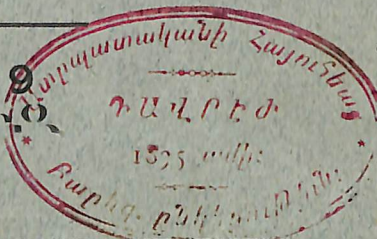 Ատրպատականի Հայուհեաց
ԴԱՎՐԷԺ
1895 ամի
Բարեգ. ընկերութիւն